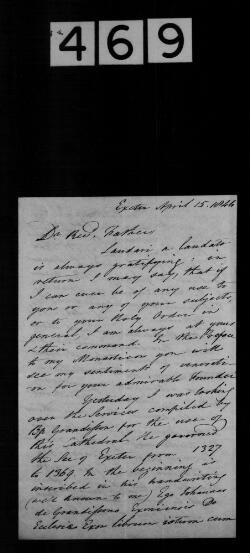 469
Exeter April 15. 1844
Dr Revd. Father
Laudari a laudato
is always gratifying: in
return I may say, that if
I can ever be of any use to
you or any of your subjects,
or to your Holy Order in
general, I am always at yours
& their command. In the Preface
to my Monasticon you will
see my sentiments of venerati
on for your admirable Founder
Yesterday I was looking
over the Services compiled by
Bp Grandisson for the use of
this Cathedral He governed
the See of Exeter from 1327
to 1369. In the beginning is
inscribed in his handwriting
(well known to me) Ego Johannes
de Grandissono Exoniensis Do
Ecclesia Exon librum istum cum